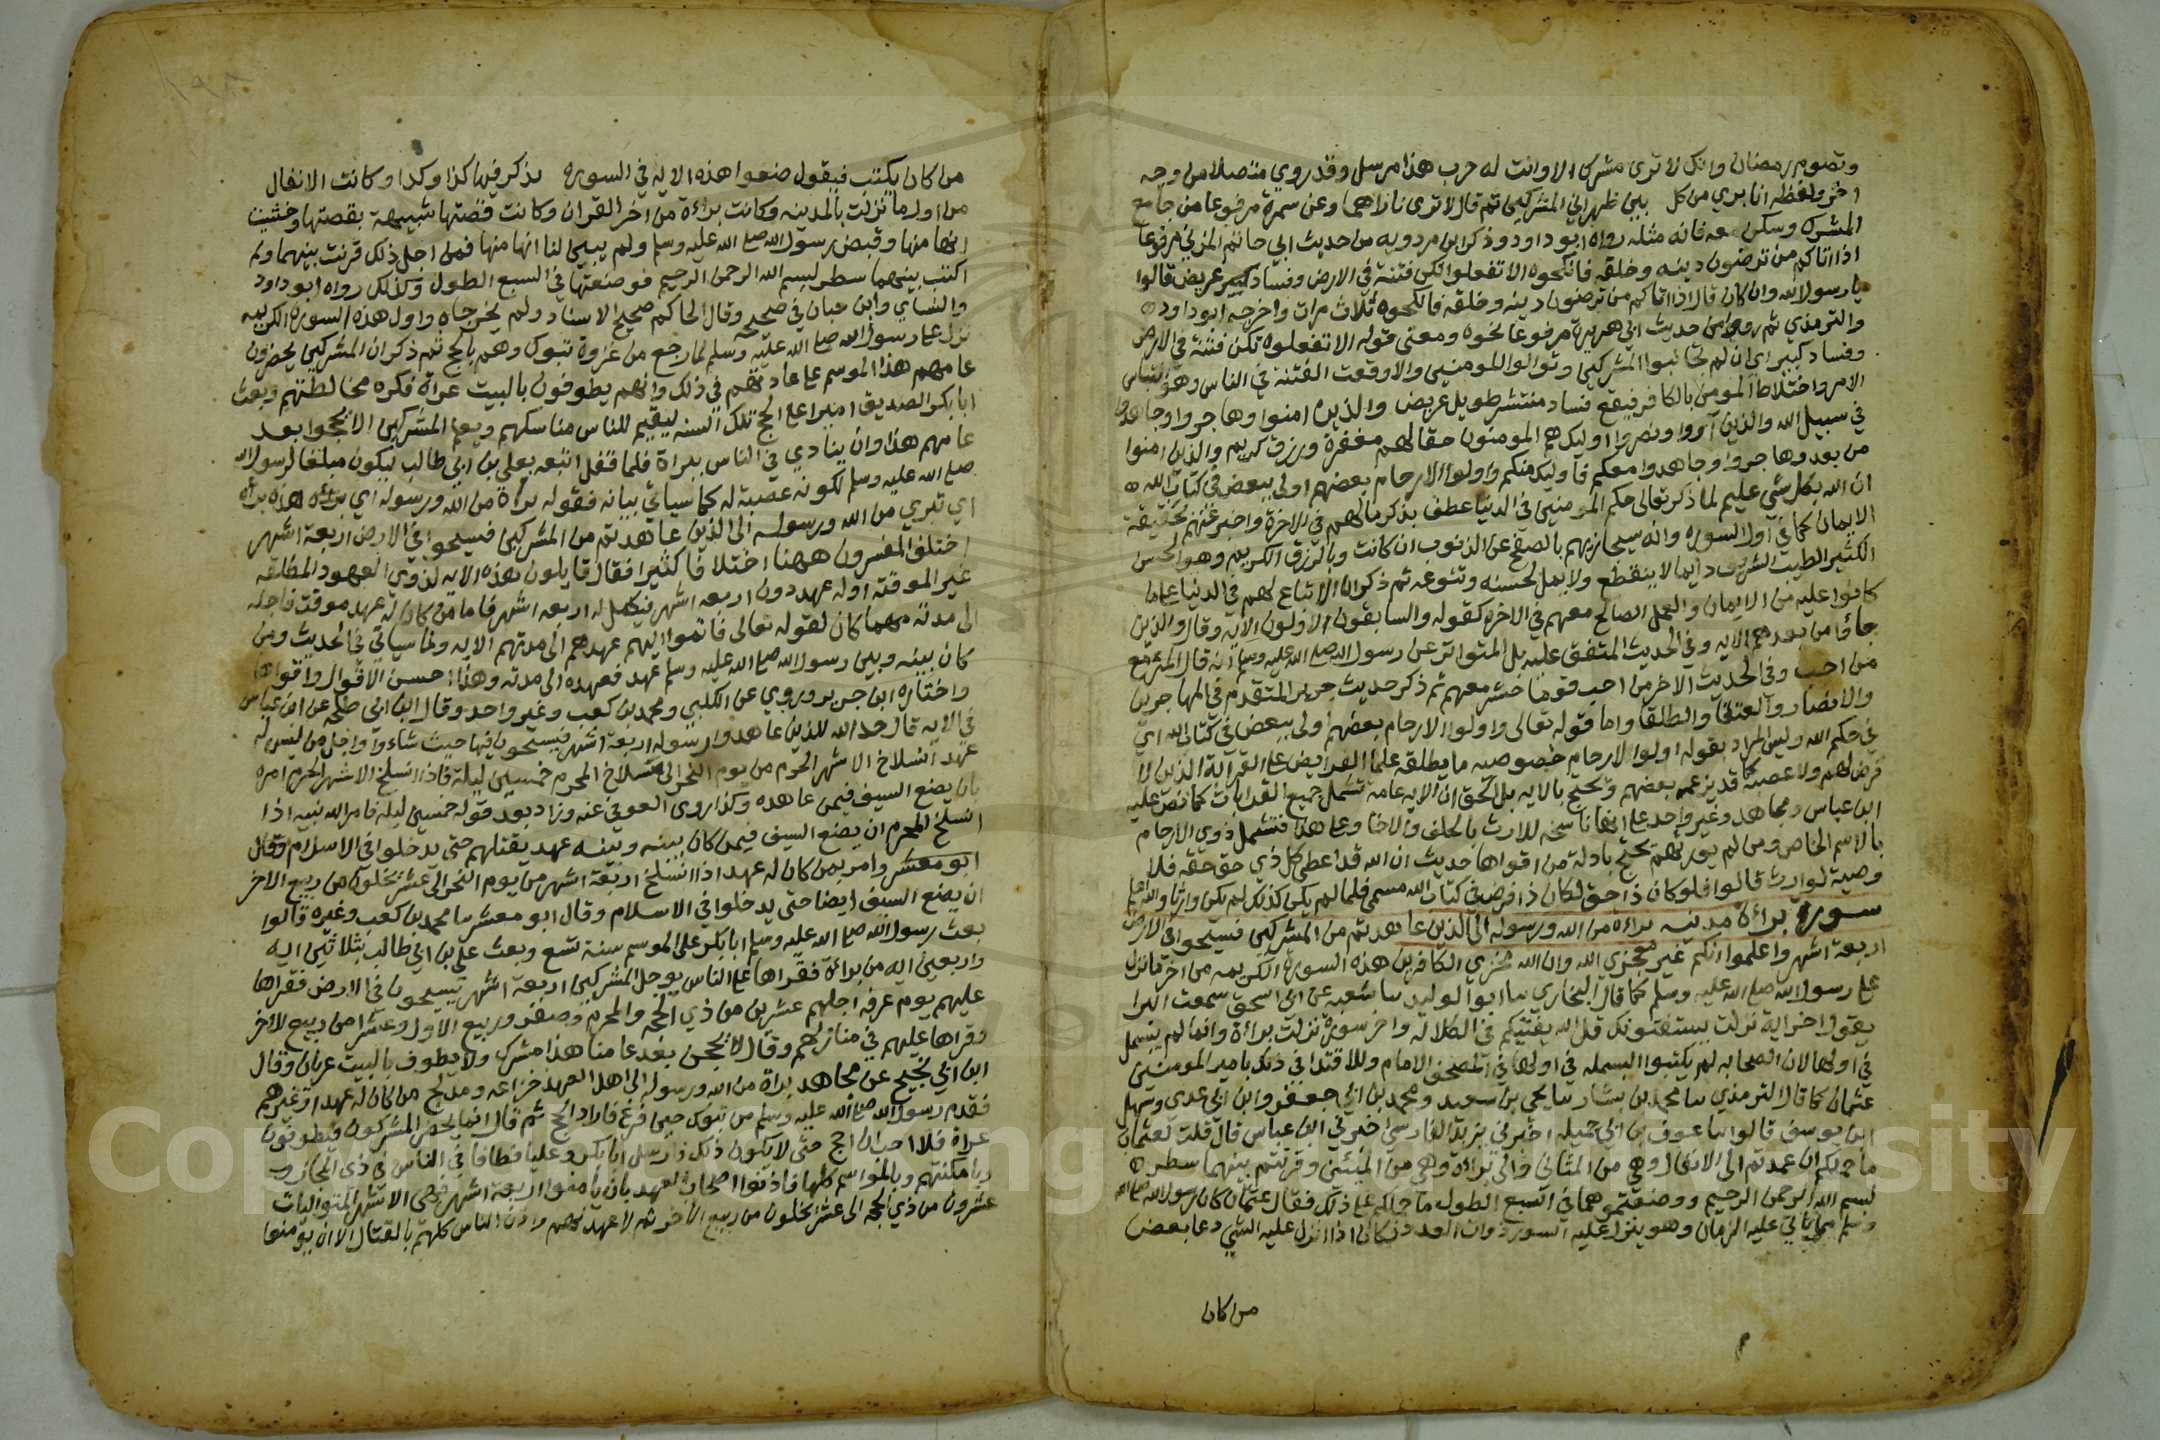 وتصوم رمضان وانك لا ترى مشركا الا وانت له حرب هذا مرسل وقد روي متصلا من وجه
اخر ولفظه انا بري من كل بين ظهراني المشركين ثم قال لا ترى ناراهما وعن سمرة مرفوعا من جامع
المشرك وسكن معه فانه مثله رواه ابو داود وذكر ابن مردويه من حديث ابي حاتم المزني مرفوعا
اذا اتاكم من ترضون دينه وخلقه فانكحوه الا تفعلوا تكن فتنة في الارض وفساد كبير عريض قالوا
يا رسول الله وان كان قال اذا اتاكم من ترضون دينه وخلقه فانكحوه ثلاث مرات واخرجه ابو داود
والترمذي ثم روي من حديث ابي هريرة مرفوعا نحوه ومعنى قوله الا تفعلوه تكن فتنة في الارض
وفساد كبير اي ان لم تجانبوا المشركين وتوالوا المومنين والا وقعت الفتنة في الناس وهو التباس
الامر واختلاط المومن بالكافر فيقع فساد منتشر طويل عريض والذين امنوا وهاجروا وجاهدوا
في سبيل الله والذين آووا ونصروا اوليك هم المومنون حقا لهم مغفرة ورزق كريم والذين امنوا
من بعد وهاجروا وجاهدوا معكم فاوليك منكم واولوا الارحام بعضهم اولى ببعض في كتاب الله
ان الله بكل شي عليم لما ذكر تعالى حكم المومنين في الدنيا عطف بذكر ما لهم في الاخرة واخبر عنهم بحقيقة
الايمان كما في اول السوره وانه سيجازيهم بالصفح عن الذنوب ان كانت وبالرزق الكريم وهو الحسن
الكثير الطيب الشريف دايما لا ينقطع ولا يمل لحسنه وتنوعه ثم ذكر ان الاتباع لهم في الدنيا على ما
كانوا عليه من الايمان والعمل الصالح معهم في الاخره كقوله والسابقون الاولون الايه وقال والذين
جاؤا من بعدهم الايه وفي الحديث المتفق عليه بل المتواتر عن رسول الله صلى الله عليه وسلم انه قال المرء مع
من احب وفي الحديث الاخر من احب قوما حشر معهم ثم ذكر حديث جرير المتقدم في المهاجرين
والانصار والعتقا والطلقا واما قوله تعالى واولوا الارحام بعضهم اولى ببعض في كتاب الله اي
في حكم الله وليس المراد بقوله اولوا الارحام خصوصيه ما يطلقه علما الفرايض على القرابة الذين لا
فرض لهم ولا عصبة كما قد يزعمه بعضهم ويحتج بالايه بل الحق ان الايه عامة تشمل جميع القرابات كما نص عليه
ابن عباس ومجاهد وغير واحد على انها ناسخه للارث بالحلف والاخا وعلى هذا فتشمل ذوي الارحام
بالاسم الخاص ومن لم يورثهم يحتج بادلة من اقواها حديث ان الله قد اعطى كل ذي حق حقه فلا
وصية لوارث قالوا فلو كان ذا حق لكان ذا فرض في كتاب الله مسمى فلما لم يكن كذلك لم يكن وارثا والله اعلم
سورة براءة مدنيه براءة من الله ورسوله الى الذين عاهدتم من المشركين فسيحوا في الارض
اربعة اشهر واعلموا انكم غير معجزي الله وان الله مخزي الكافرين هذه السورة الكريمه من اخر ما نزل
على رسول الله صلى الله عليه وسلم كما قال البخاري ثنا ابو الوليد ثنا شعبه عن ابي اسحق سمعت البرا
يقول اخر اية نزلت يستفتونك قل الله يفتيكم في الكلاله واخر سورة نزلت براءة وانما لم يبسمل
في اولها لان الصحابه لم يكتبوا البسمله في اولها في المصحف الامام وللاقتدا في ذلك بامير المومنين
عثمان كما قال الترمذي ثنا محمد بن بشار ثنا يحيى بن سعيد ومحمد بن ابي جعفر وابن ابي عدى وسهل
ابن يوسف قالوا ثنا عوف بن ابي جميله اخبرني يزيد الفارسي اخبرني ابن عباس قال قلت لعثمان
ما حملكم ان عمدتم الى الانفال وهي من المثاني والى براءة وهي من المئين وقرنتم بينهما سطر
بسم الله الرحمن الرحيم ووضعتموهما في السبع الطول ما حملكم على ذلك فقال عثمان كان رسول الله صلى الله
وسلم مما ياتي عليه الزمان وهو ينزل عليه السور ذوات العدد فكان اذا انزل عليه الشي دعا بعض
من كان
من كان يكتب فيقول ضعوا هذه الايه في السورة يذكر فيها كذا وكذا وكانت الانفال
من اول ما نزلت بالمدينه وكانت براءة من اخر القران وكانت قصتها شبيهة بقصتها وخشيت
انها منها وقبض رسول الله صلى الله عليه وسلم ولم يبين لنا انها منها فمن اجل ذلك قرنت بينهما ولم
اكتب بينهما سطر بسم الله الرحمن الرحيم فوضعتها في السبع الطول وكذلك رواه ابو داود
والنساي وابن حبان في صحيحه وقال الحاكم صحيح الاسناد ولم يخرجاه واول هذه السورة الكريمه
نزل على رسول الله صلى الله عليه وسلم لما رجع من غزوة تبوك وهم بالحج ثم ذكر ان المشركين يحضرون
عامهم هذا الموسم على عادتهم في ذلك وانهم يطوفون بالبيت عراة فكره مخالطتهم وبعث
ابا بكر الصديق اميرا على الحج تلك السنه ليقيم للناس مناسكهم ويعلم المشركين الا يحجوا بعد
عامهم هذا وان ينادي في الناس ببراة فلما قفل اتبعه بعلي بن ابي طالب ليكون مبلغا لرسول الله
صلى الله عليه وسلم لكونه عصبة له كما سياتي بيانه فقوله براءة من الله ورسوله اي هذه براة
اي تبري من الله ورسوله الى الذين عاهدتم من المشركين فسيحوا في الارض اربعة اشهر
اختلف المفسرون ههنا اختلافا كثيرا فقال قايلون هذه الايه لذوي العهود المطلقه
غير الموقتة او له عهد دون اربعه اشهر فيكمل له اربعه اشهر فاما من كان له عهد موقت فاجله
الى مدته مهما كان لقوله تعالى فاتموا اليهم عهدهم الى مدتهم الايه ولما سياتي في الحديث ومن
كان بينه وبين رسول الله صلى الله عليه وسلم عهد فعهده الى مدته وهذا احسن الاقوال واقواها
واختاره ابن جرير وروي عن الكلبي ومحمد بن كعب وغير واحد وقال ابن ابي طلحه عن ابن عباس
في الايه قال حد الله للذين عاهدوا رسوله اربعة اشهر يسيحون فيها حيث شاءوا واجل من ليس له
عهد انسلاخ الاشهر الحرم من يوم النحر الى انسلاخ المحرم خمسين ليلة فاذا انسلخ الاشهر الحرم امره
بان يضع السيف فيمن عاهده وكذا روى العوفي عنه وزاد بعد قوله خمسين ليله فامر الله نبيه اذا
انسلخ المحرم ان يضع السيف فيمن كان بينه وبينه عهد يقتلهم حتى يدخلوا في الاسلام وقال
ابو معشر وامر بمن كان له عهد اذا انسلخ اربعة اشهر من يوم النحر الى عشر يخلون من ربيع الاخر
ان يضع السيف ايضا حتى يدخلوا في الاسلام وقال ابو معشر ثنا محمد بن كعب وغيره قالوا
بعث رسول الله صلى الله عليه وسلم ابا بكر على الموسم سنة تسع وبعث علي بن ابي طالب بثلاثين اية
واربعين اية من براءة فقراها على الناس يوجل المشركين اربعة اشهر يسيحون في الارض فقراها
عليهم يوم عرفه اجلهم عشرين من ذي الحجه والمحرم وصفر وربيع الاول وعشرا من ربيع الاخر
وقراها عليهم في منازلهم وقال لا يحجن بعد عامنا هذا مشرك ولا يطوف بالبيت عريان وقال
ابن ابي نجيح عن مجاهد براة من الله ورسوله الى اهل العهد خزاعه ومدلج من كان له عهد او غيرهم
فقدم رسول الله صلى الله عليه وسلم من تبوك حين فرغ فاراد الحج ثم قال انما يحضر المشركون فيطوفون
عراة فلا احب ان احج حتى لا يكون ذلك فارسل ابا بكر وعليا فطافا في الناس في ذي المجاز و
بامكنتهم وبالمواسم كلها فاذنوا اصحاب العهد بان يامنوا اربعة اشهر فهي الاشهر المتواليات
عشرون من ذي الحجه الى عشر يخلون من ربيع الاخر ثم لا عهد لهم واذن الناس كلهم بالقتال الا ان يومنوا